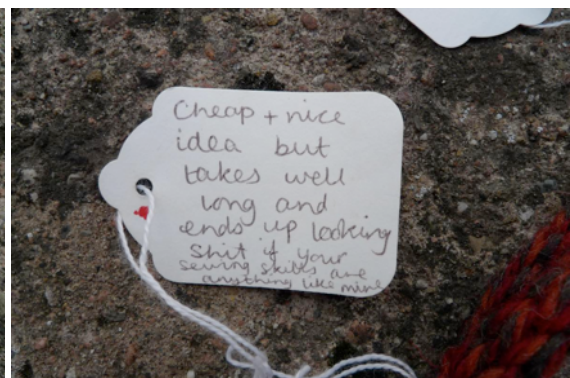 Cheap + nice
idea but
takes well
long and
ends up looking
shit if your
sewing skills are
anything like mine